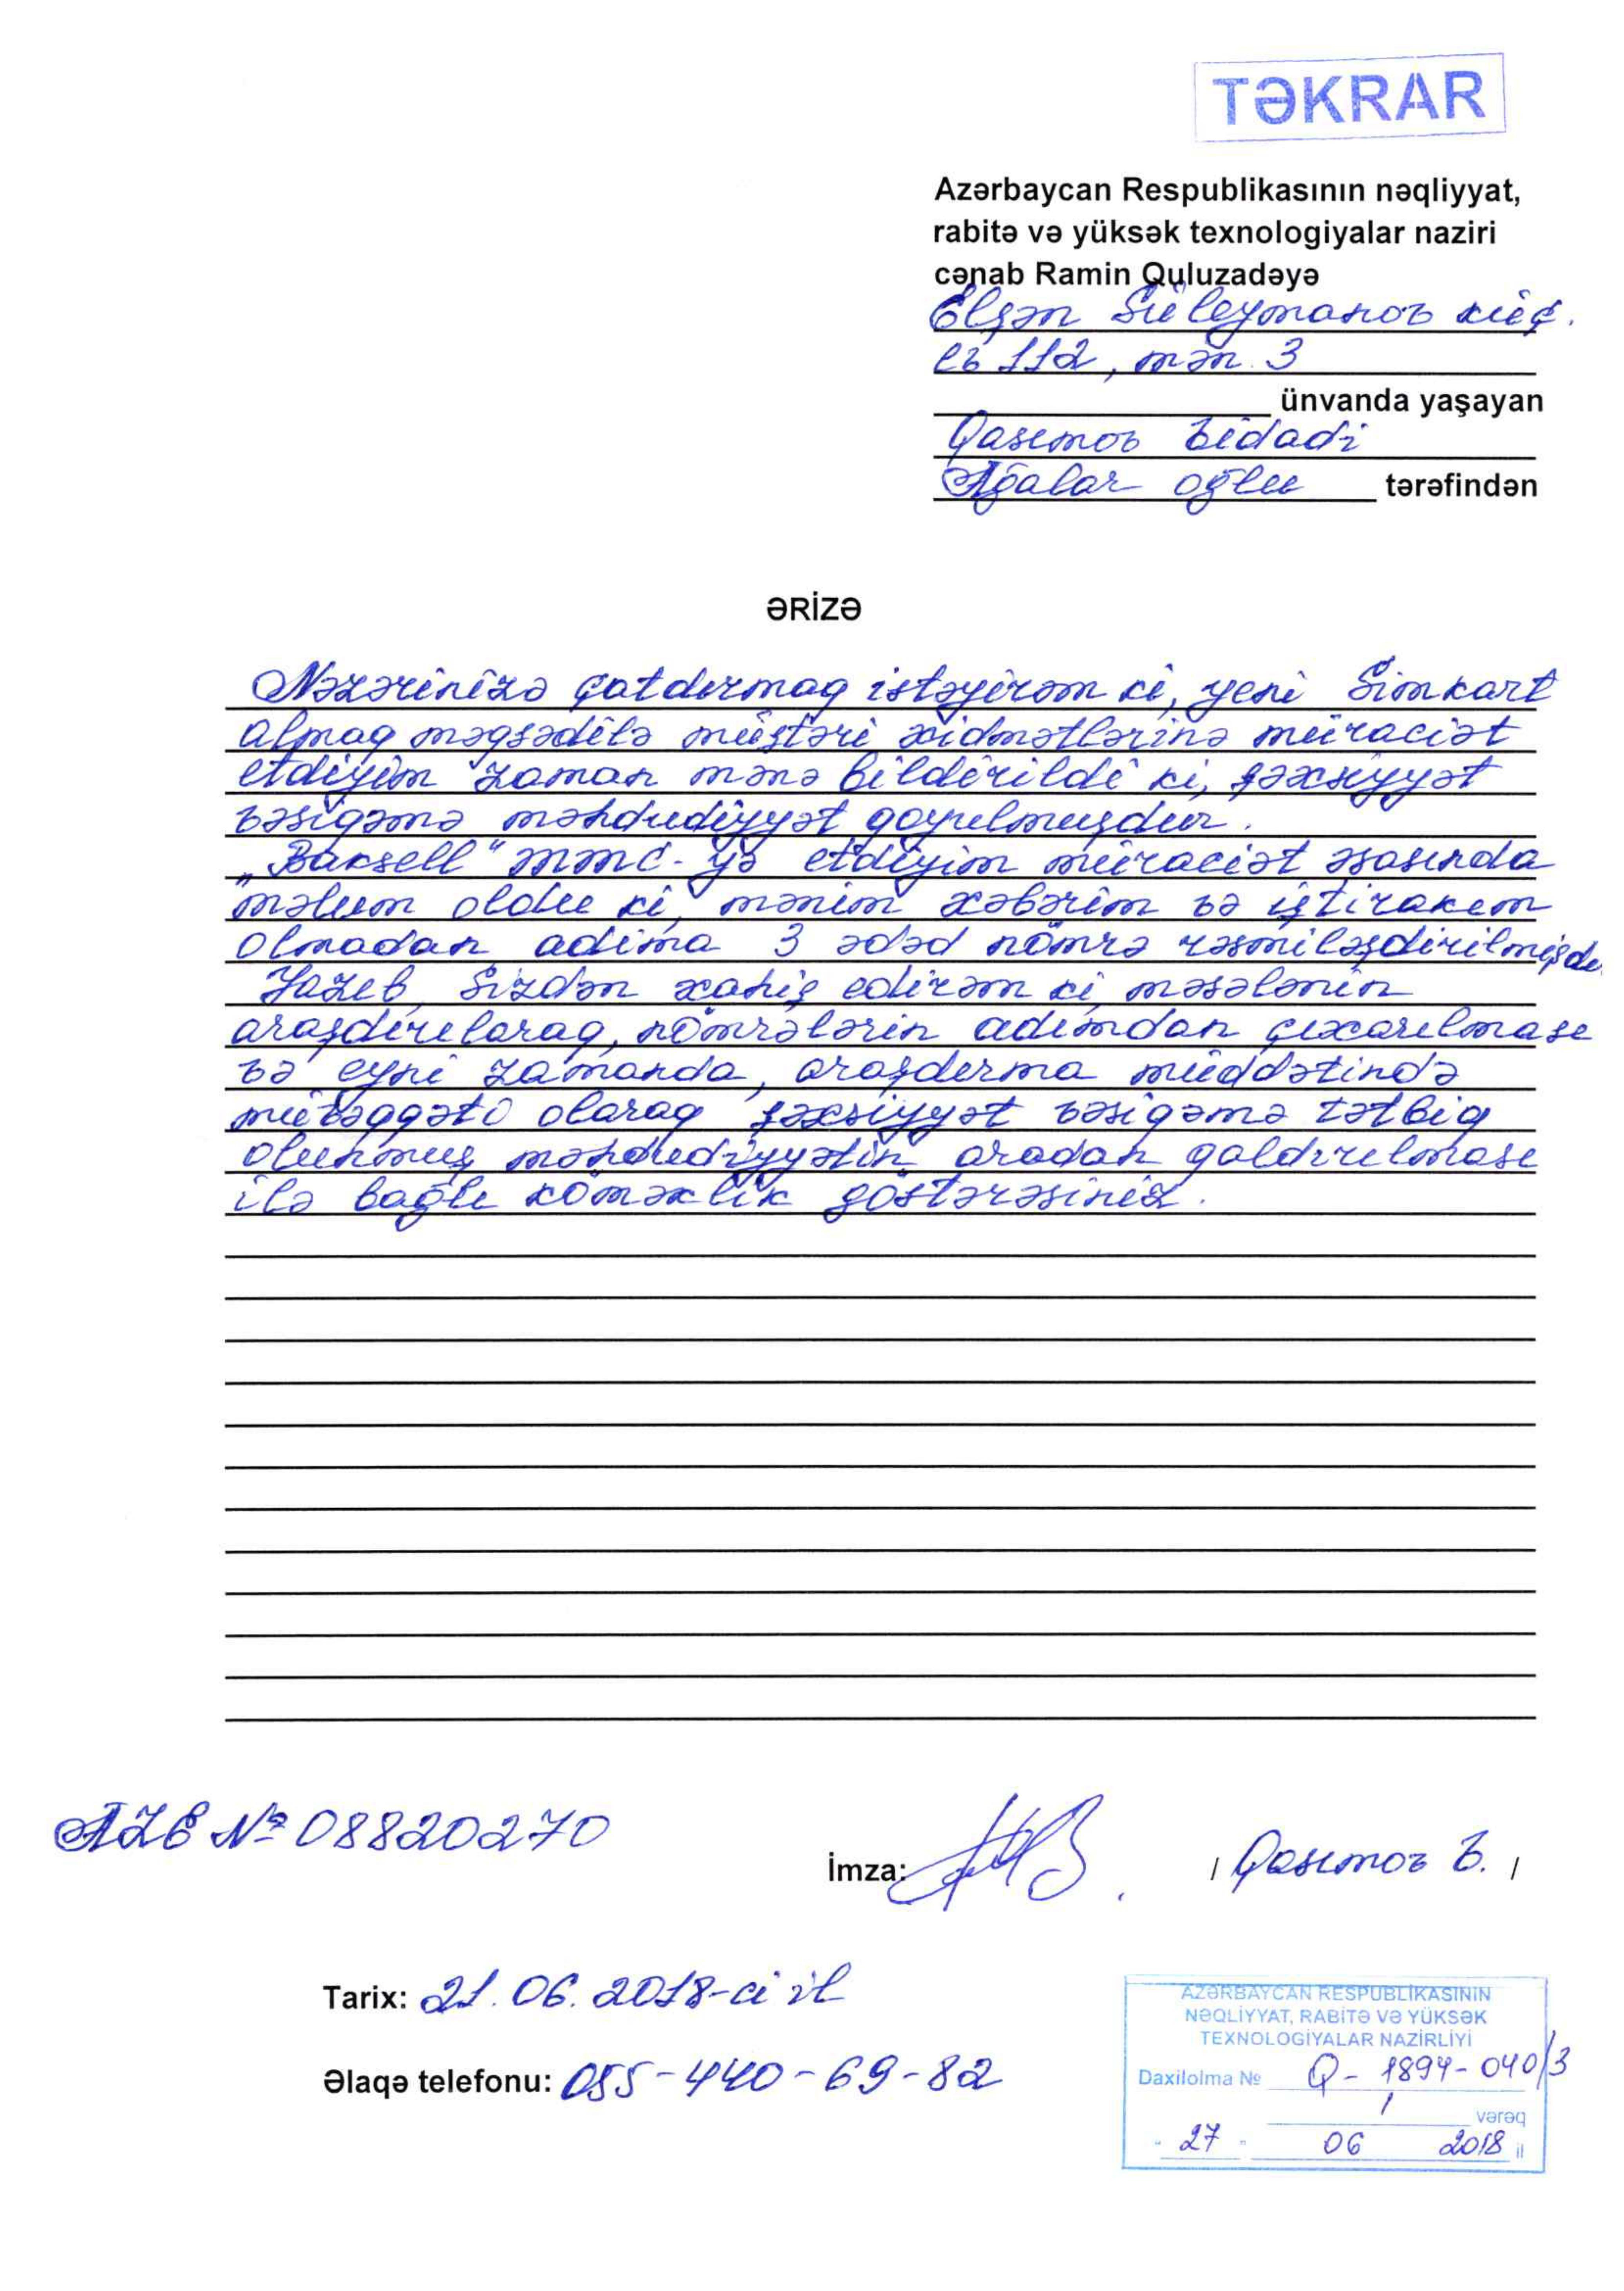 TƏKRAR
Azərbaycan Respublikasının nəqliyyat,
rabitə və yüksək texnologiyalar naziri
cənab Ramin Quluzadəyə
Elşən Süleymanov küç.
ev 112, mən. 3
ünvanda yaşayan
Qasımov Vidadi
Ağalar oğlu tərəfindən
ƏRİZƏ
Nəzərinizə çatdırmaq istəyirəm ki, yeni Simkart
almaq məqsədilə müştəri xidmətlərinə müraciət
etdiyim zaman mənə bildirildi ki, şəxsiyyət
vəsiqəmə məhdudiyyət qoyulmuşdur.
„Baksell" MMC-yə etdiyim müraciət əsasında
məlum oldu ki, mənim xəbərim və iştirakım
olmadan adıma 3 ədəd nömrə rəsmiləşdirilmişdi.
Yazıb, Sizdən xahiş edirəm ki məsələnin
araşdırılaraq, nömrələrin adımdan çıxarılması
və eyni zamanda, araşdırma müddətində
müvəqqəti olaraq şəxsiyyət vəsiqəmə tətbiq
olunmuş məhdudiyyətin aradan qaldırılması
ilə bağlı köməklik göstərəsiniz.
AZE № 08820270
İmza: / Qasımov V. /
Tarix: 21.06.2018-ci il
Əlaqə telefonu: 055-440-69-82
AZƏRBAYCAN RESPUBLİKASININ
NƏQLİYYAT, RABİTƏ VƏ YÜKSƏK
TEXNOLOGİYALAR NAZİRLİYİ
Daxilolma № Q-1894-040/3
1 vərəq
" 27 " 06 2018 il